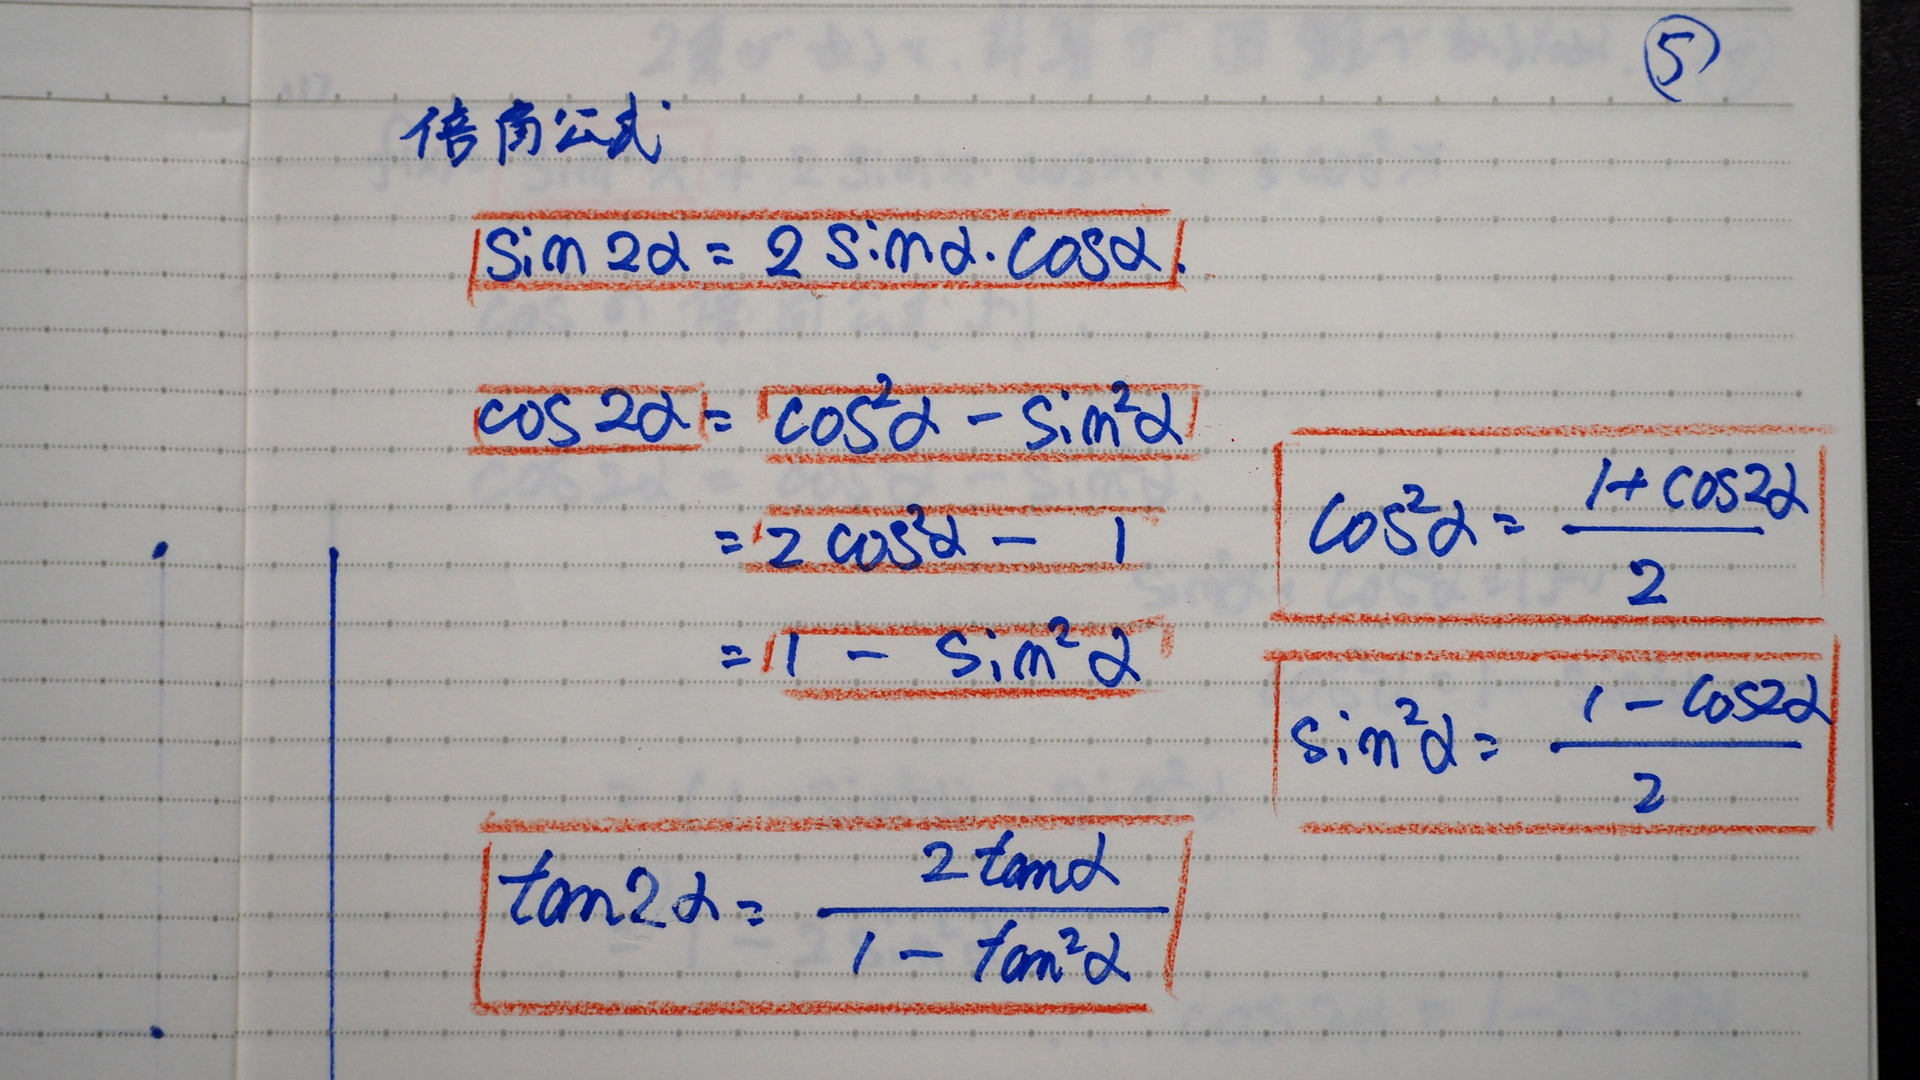 ⑤
倍角公式
sin2α = 2 sinα·cosα.
cos2α = cos²α - sin²α
= 2cos²α - 1
cos²α = (1+cos2α)/2
= 1 - sin²α
sin²α = (1-cos2α)/2
tan2α = 2tanα/(1-tan²α)